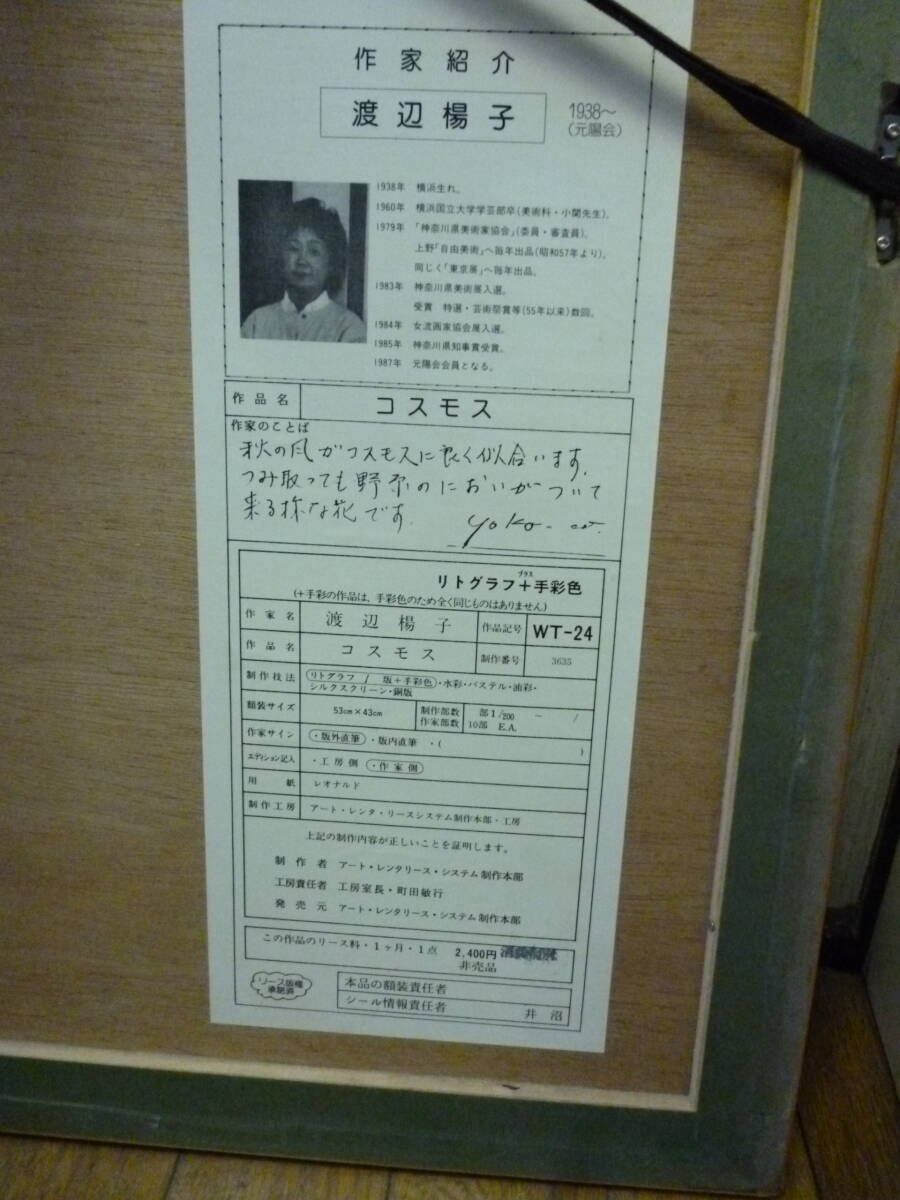 作家紹介
渡辺楊子
1938〜
(元陽会)
1938年 横浜生れ。
1960年 横浜国立大学学芸部卒(美術科・小関先生)。
1979年 「神奈川県美術家協会」(委員・審査員)。
上野「自由美術」へ毎年出品(昭和57年より)。
同じく「東京展」へ毎年出品。
1983年 神奈川県美術展入選。
受賞 特選・芸術祭賞等(55年以来)数回。
1984年 女流画家協会展入選。
1985年 神奈川県知事賞受賞。
1987年 元陽会会員となる。
作品名 コスモス
作家のことば
秋の風がコスモスに良く似合います。
つみ取っても野原のにおいがついて
来る様な花です。
yoko
プラス
リトグラフ+手彩色
(+手彩の作品は、手彩色のため全く同じものはありません)
作家名 渡辺楊子 作品記号 WT-24
作品名 コスモス 制作番号 3635
制作技法 リトグラフ / 版+手彩色・水彩・パステル・油彩・
シルクスクリーン・銅版
額装サイズ 53cm×43cm 制作部数 部1/200 − /
作家部数 10部 E.A.
作家サイン ・版外直筆・版内直筆・( )
エディション記入 ・工房側 ・作家側
用紙 レオナルド
制作工房 アート・レンタ・リースシステム制作本部・工房
上記の制作内容が正しいことを証明します。
制作者 アート・レンタリース・システム制作本部
工房責任者 工房室長・町田敏行
発売元 アート・レンタリース・システム制作本部
この作品のリース料・1ヶ月・1点 2,400円
非売品
リース版権
承諾済
本品の額装責任者
シール情報責任者 井沼